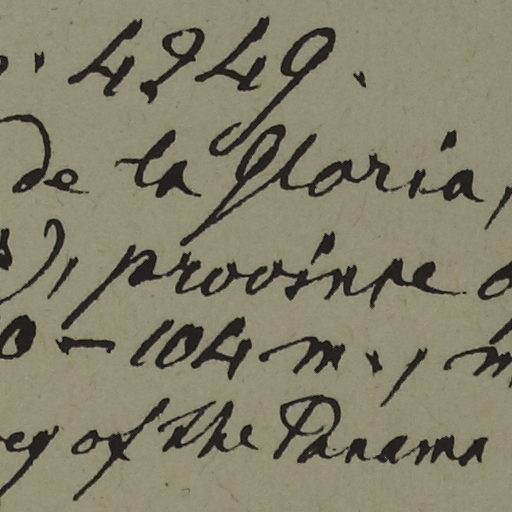 . 4249.
de la Gloria,
), province
0-104 m.,
ey of the Panama